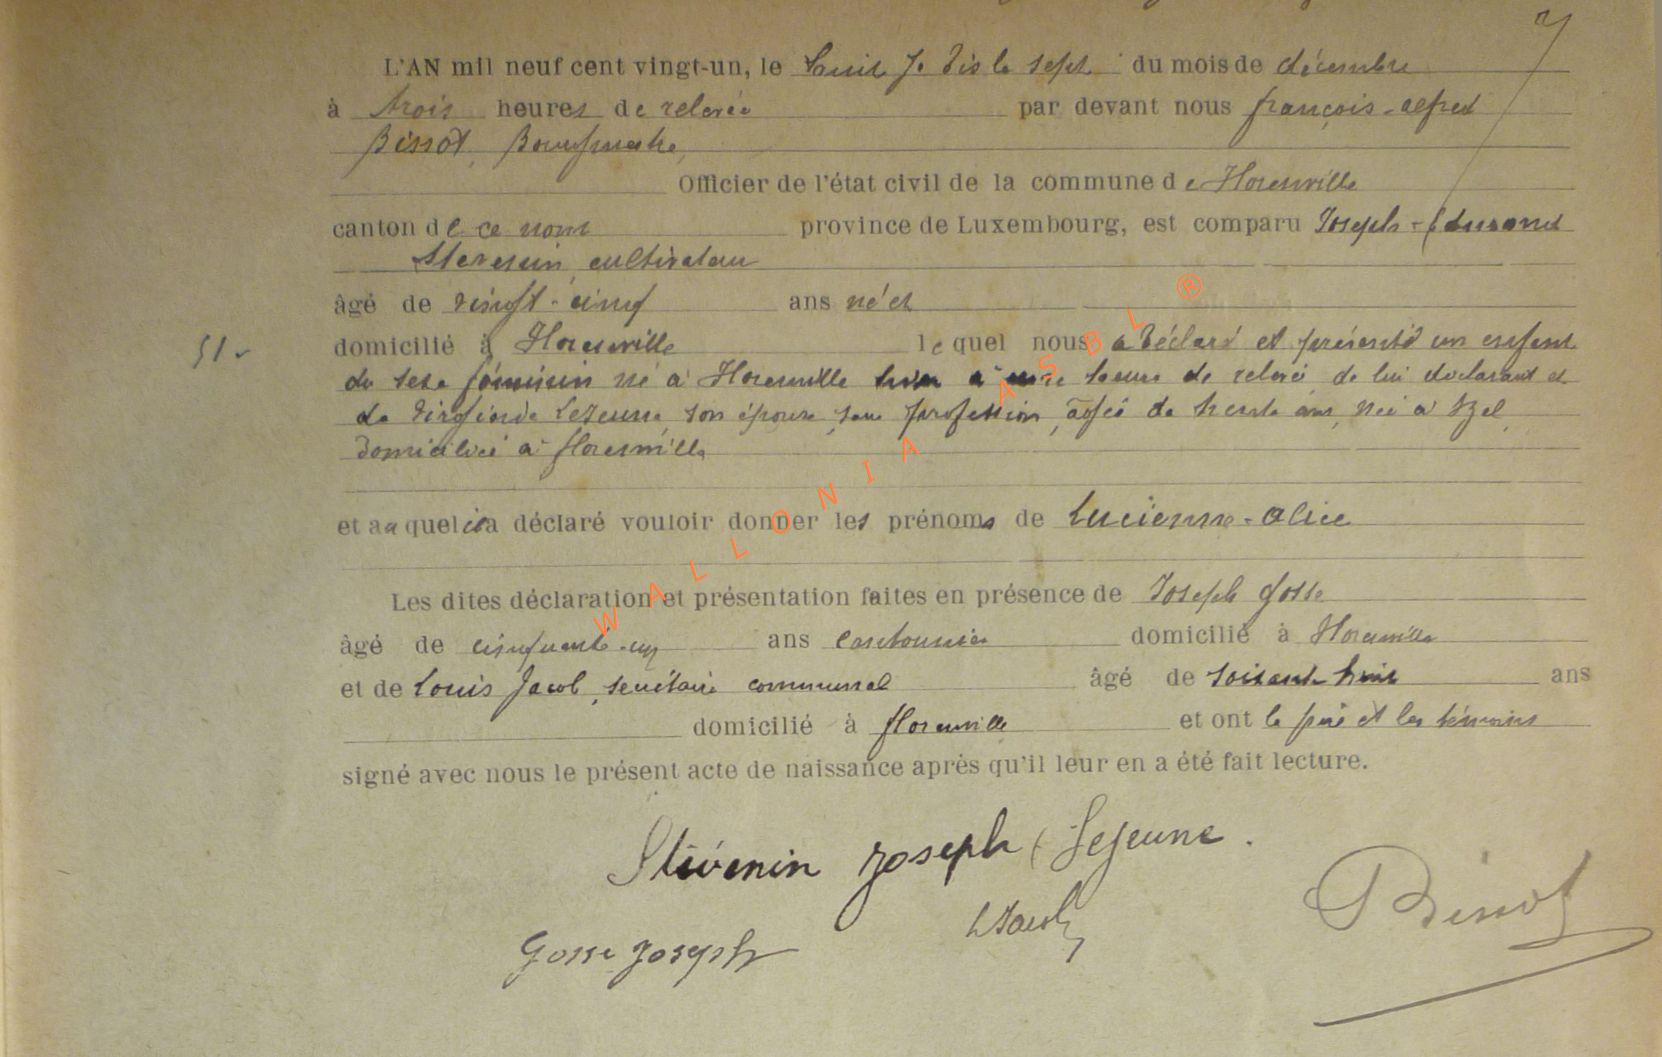 L'AN mil neuf cent vingt-un, le dix sept du mois de décembre
à trois heures de relevée par devant nous françois-alfred
Bissot, Bourgmestre,
Officier de l'état civil de la commune de Florenville
canton de ce nom province de Luxembourg, est comparu Joseph-Edmond
Stevenin, cultivateur
âgé de vingt-cinq ans né et
51. domicilié à Florenville lequel nous a déclaré et présenté un enfant
du sexe féminin né à Florenville hier à heure de relevé de lui déclarant et
de Lejeune, son épouse, sans profession, âgée de trente ans, née à Izel,
domiciliée à florenville
et auquel il a déclaré vouloir donner les prénoms de Lucienne-alice
Les dites déclaration et présentation faites en présence de Joseph Gosse
âgé de cinquante-un ans cantonnier domicilié à Florenville
et de Louis Jacob, secrétaire communal âgé de soixante huit ans
domicilié à florenville et ont le père et les témoins
signé avec nous le présent acte de naissance après qu'il leur en a été fait lecture.
Stévenin Joseph ( Lejeune.
LJacob
Bissot
Gosse Joseph
WALLONIA ASBL ®